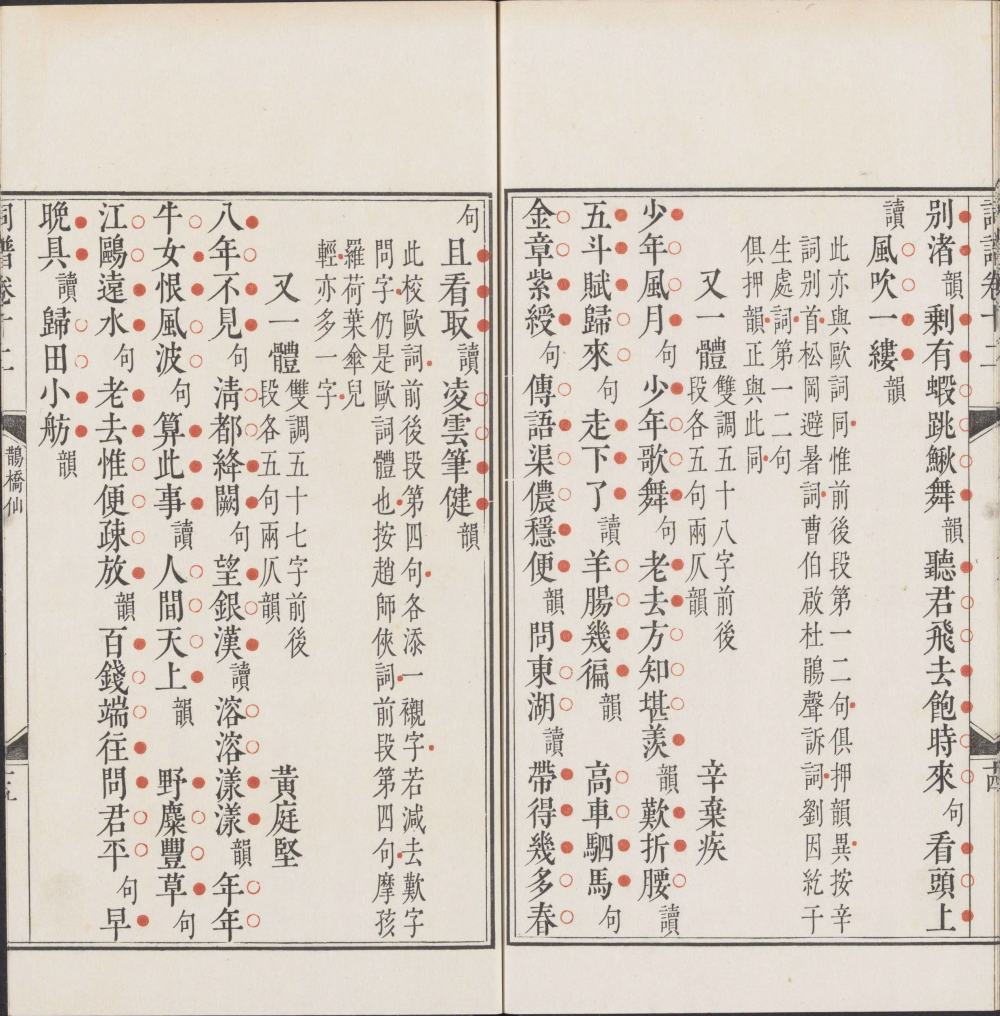 別渚韻剩有蝦跳鰍舞韻聽君飛去飽時來句看頭上
讀風吹一縷韻
此亦與歐詞同惟前後段第一二句俱押韻異按辛
詞别首松岡避暑詞曹伯啟杜鵑聲訴詞劉因紇干
生處詞第一二句
俱押韻正與此同
又一體雙調五十八字前後
段各五句兩仄韻
辛棄疾
少年風月句少年歌舞句老去方知堪羨韻歎折腰讀
五斗賦歸來句走下了讀羊腸幾徧韻高車駟馬句
金章紫綬句傳語渠儂穩便韻問東湖讀帶得幾多春
句且看取讀凌雲筆健韻
此校歐詞前後段第四句各添一襯字若減去歎字
問字仍是歐詞體也按趙師俠詞前段第四句摩孩
羅荷葉傘兒
輕亦多一字
又一體雙調五十七字前後
段各五句兩仄韻
黃庭堅
八年不見句清都絳闕句望銀漢讀溶溶漾漾韻年年
牛女恨風波句算此事讀人間天上韻野麋豐草句
江鷗遠水句老去惟便疎放韻百錢端往問君平句早
晚具讀歸田小舫韻
鵲橋仙